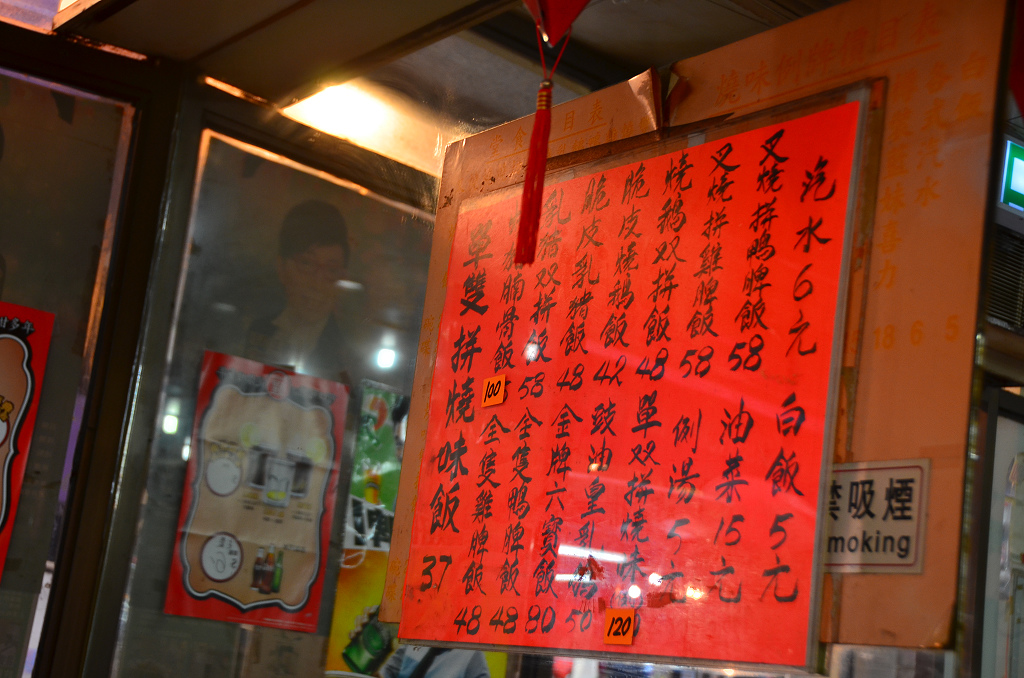 汽水6元
叉燒拼鴨脾飯58
叉燒拼雞脾飯58
燒鵝双拼飯48
脆皮燒鵝飯42
脆皮乳豬飯48
乳豬双拼飯58
腩骨飯
100
單雙拼燒味飯37
白飯5元
油菜15元
例湯5元
單双拼燒味
120
豉油皇乳鴿50
金牌六寶飯80
全隻鴨脾飯48
全隻雞脾飯48
吸煙
moking